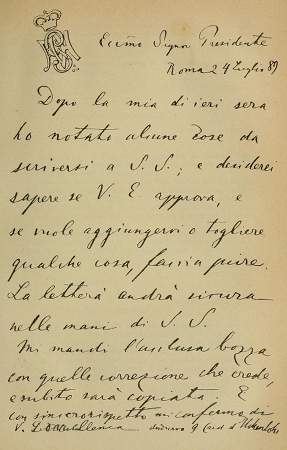 Ecc͞mo Signor Presidente
Roma 24 Luglio 89
Dopo la mia di ieri sera
ho notato alcune cose da
scriversi a S. S.; e desiderei
sapere se V. E. approva, e
se vuole aggiungervi o togliere
qualche cosa, faccia pure.
La lettera andrà sicura
nelle mani di S. S.
Mi mandi l'acclusa bozza
con quelle correzione che crede,
e subito sarà copiata. E
con sincero rispetto mi confermo di
V. E. G. Card. d'Hohenlohe